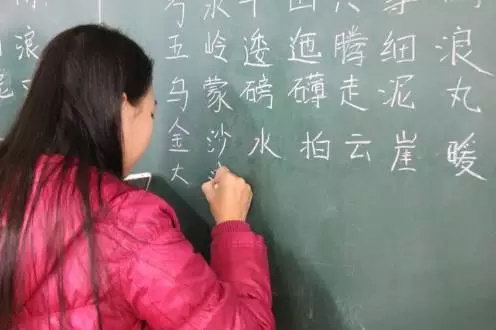 浪
五岭逶迤腾细浪
乌蒙磅礴走泥丸
金沙水拍云崖暖
大